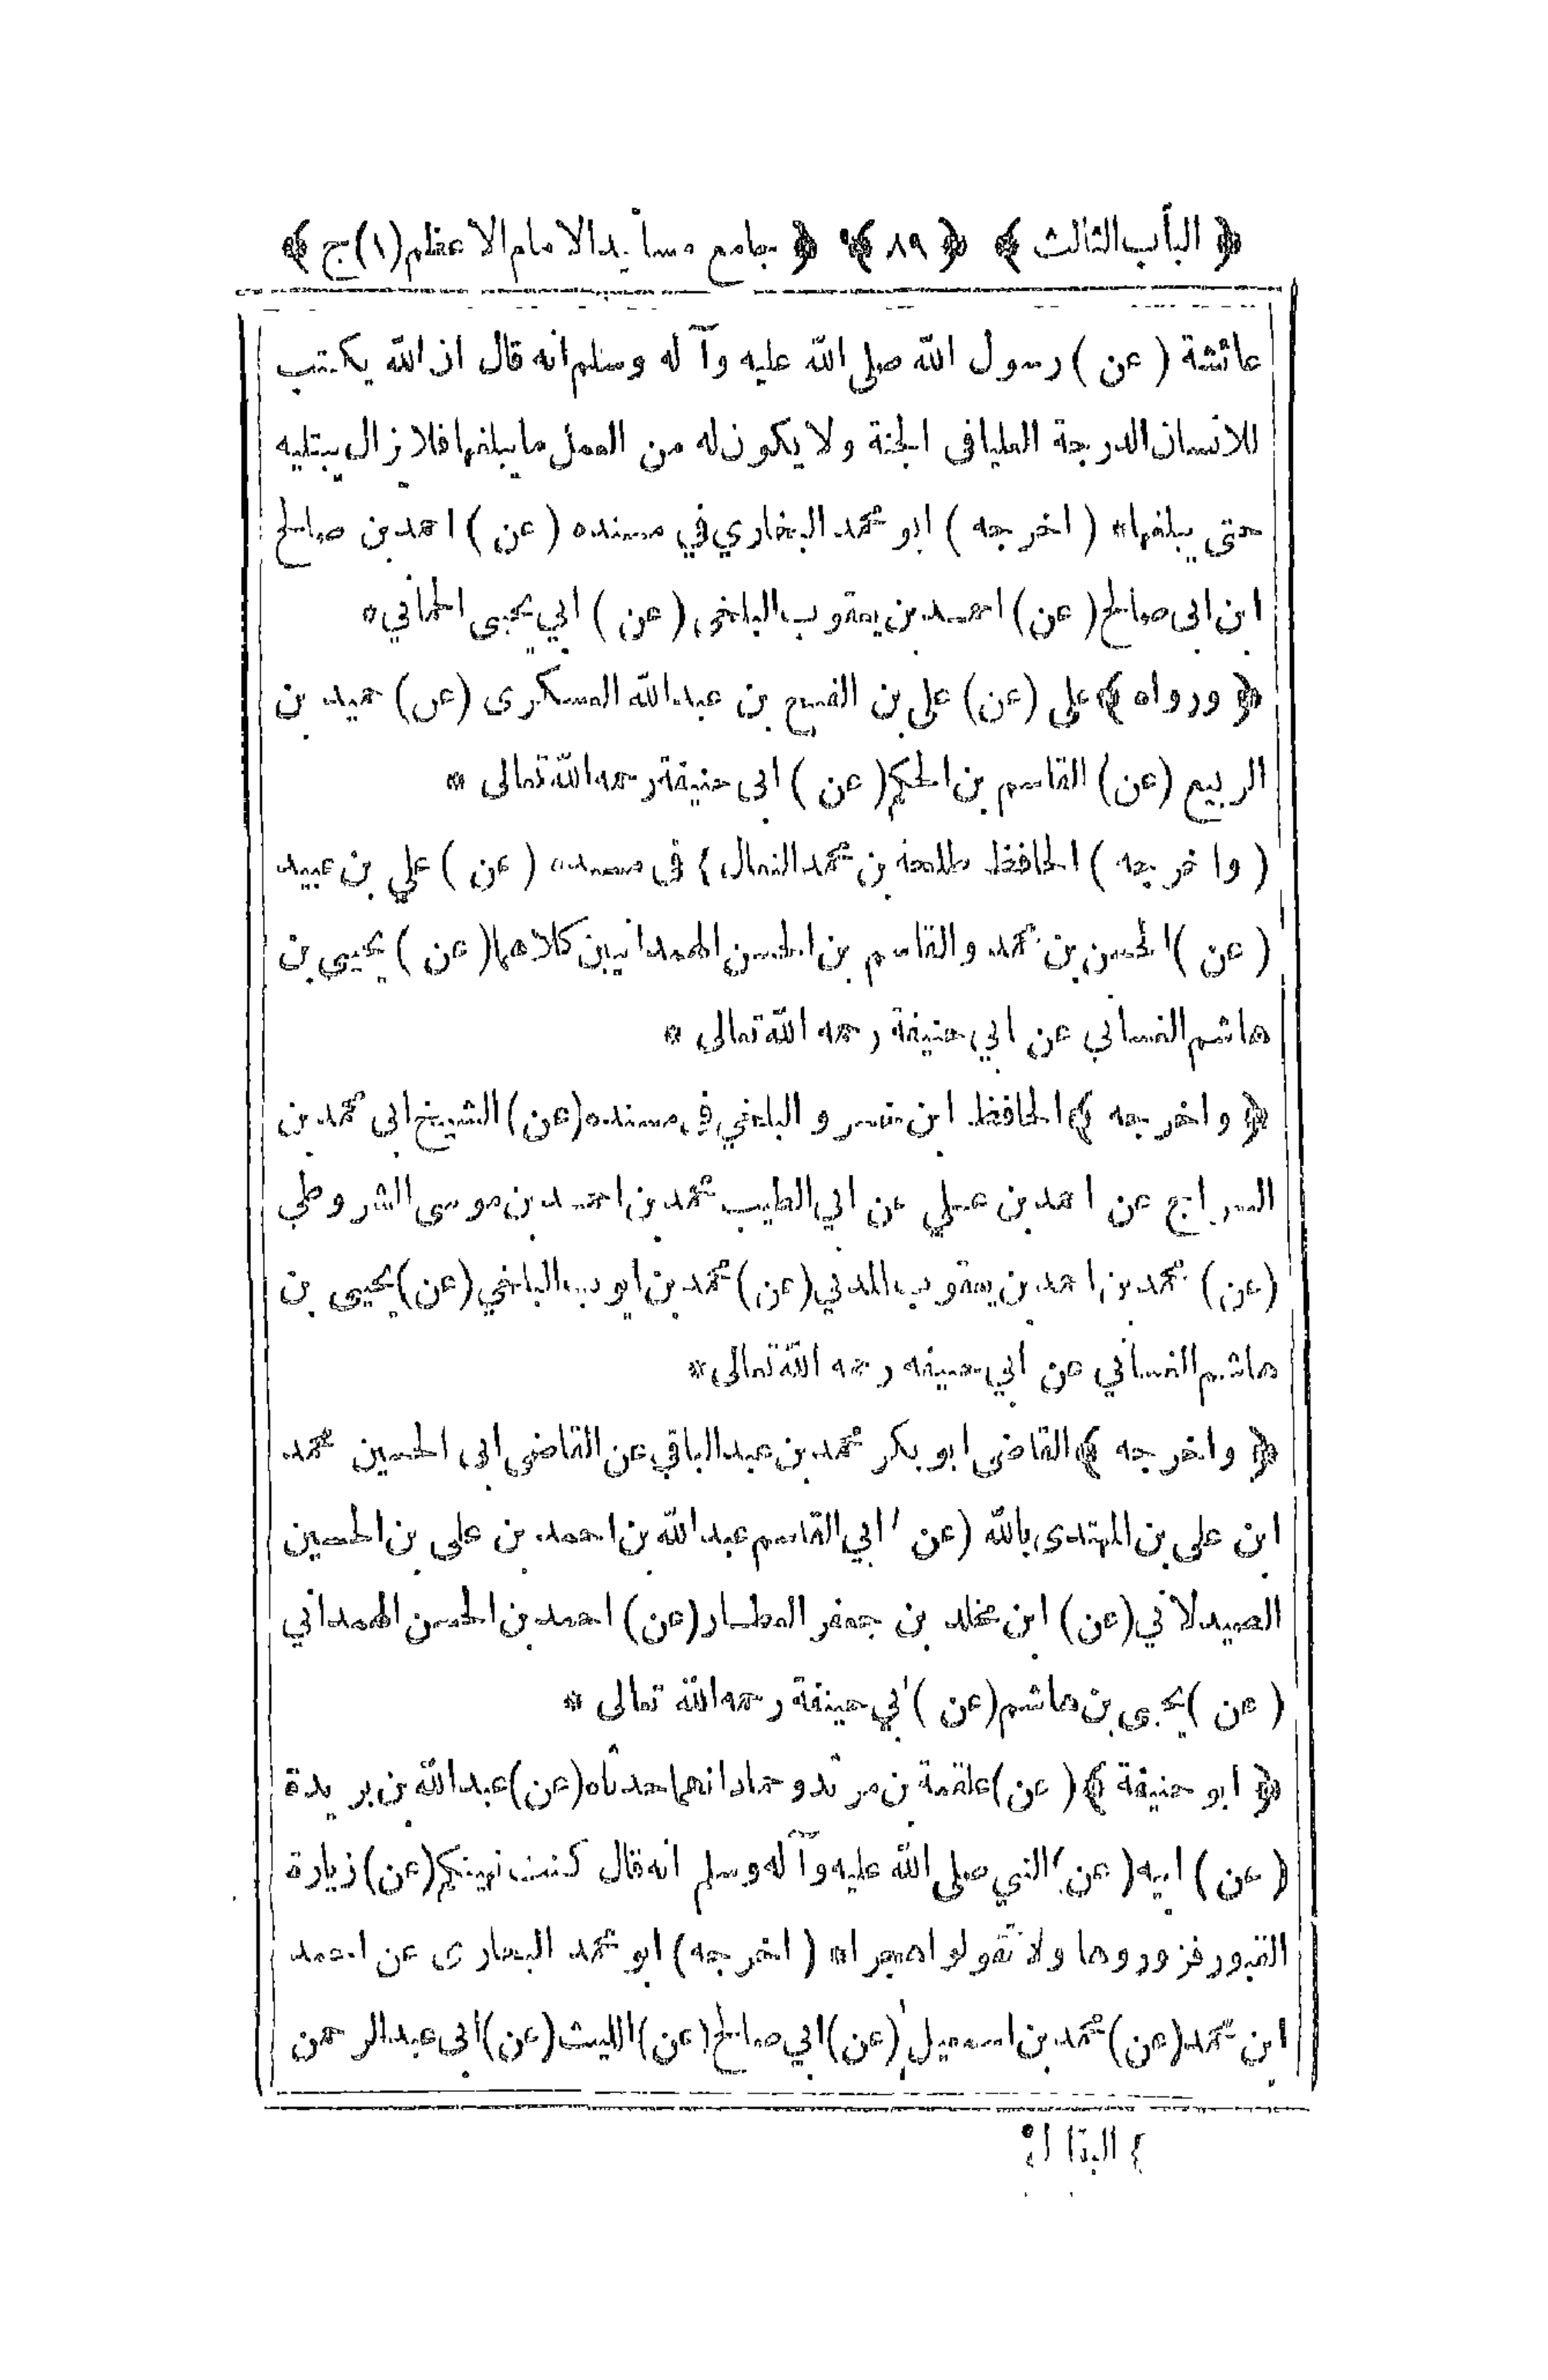 ﴿ الباب الثالث ﴾ ﴿ ٨٩ ﴾ ﴿ جامع مسانيد الامام الاعظم (١) ج ﴾
عائشة ( عن ) رسول الله صلى الله عليه وآ له وسلم انه قال ان الله يكتب
للانسان الدرجة العليا فى الجنة ولا يكون له من العمل ما يبلغها فلا يزال يبتليه
حتى يبلغها * ( اخرجه ) ابو محمد البخاري في مسنده ( عن ) احمد بن صالح
ابن ابى صالح ( عن ) احمد بن يعقوب البلخى ( عن ) ابي يحيى الحماني *
﴿ ورواه ﴾ على (عن) على بن الفسح بن عبد الله العسكرى (عن) حميد بن
الربيع (عن) القاسم بن الحكم ( عن ) ابى حنيفة رحمه الله تعالى *
( واخرجه ) الحافظ طلحة بن محمد النعال ٤ فى مسنده ( عن ) علي بن عبيد
( عن ) الحسن بن محمد والقاسم بن الحسن الهمدانيين كلاهما ( عن ) يحيى بن
هاشم الغساني عن ابي حنيفة رحمه الله تعالى *
﴿ واخرجه ﴾ الحافظ ابن خسرو البلخي في مسنده (عن) الشيخ ابى محمد بن
السراج عن احمد بن علي عن ابي الطيب محمد بن احمد بن موسى الشروطي
(عن) محمد بن احمد بن يعقوب المدني (عن) محمد بن ايوب البلخي (عن) يحيى بن
هاشم الغساني عن ابي حنيفه رحمه الله تعالى *
﴿ واخرجه ﴾ القاضى ابو بكر محمد بن عبد الباقي عن القاضى ابى الحسين محمد
ابن على بن المهتدى بالله (عن) ابي القاسم عبد الله بن احمد بن على بن الحسين
الصيدلاني (عن) ابن مخلد بن جعفر العطار (عن) احمد بن الحسن الهمداني
( عن ) يحيى بن هاشم (عن) ابي حنيفة رحمه الله تعالى *
﴿ ابو حنيفة ﴾ ( عن ) علقمة بن مرثد وحماد انهما حدثاه (عن) عبد الله بن بريدة
( عن ) ابيه ( عن ) النبي صلى الله عليه وآ له وسلم انه قال كنت نهيتكم (عن) زيارة
القبور فزوروها ولا تقولوا هجرا * ( اخرجه ) ابو محمد البخارى عن احمد
ابن محمد (عن) محمد بن اسمعيل (عن) ابي صالح (عن) الليث (عن) ابى عبد الرحمن